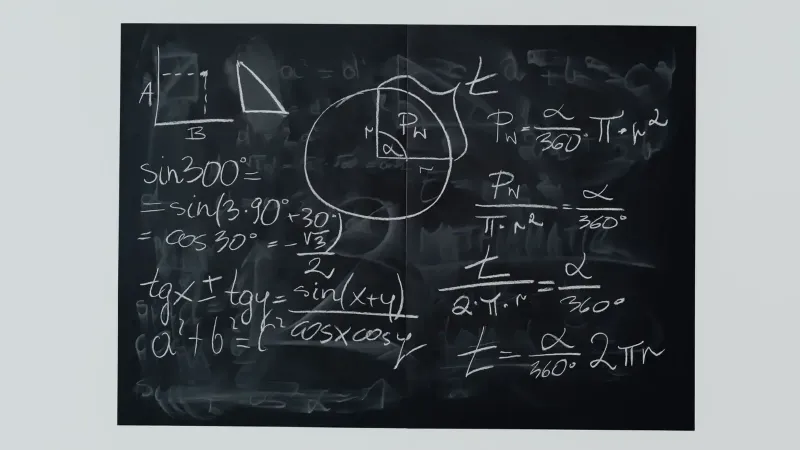 A
B
sin300°=
= sin(3·90°+30°)
= cos30° = -√3/2
tgx ± tgy = sin(x+y)/cosxcosy
a²+b²=c²
t
r
P_w
α
r
P_w = α/360 · π · r²
P_w/π·r² = α/360°
t/2·π·r = α/360°
t = α/360° 2πr